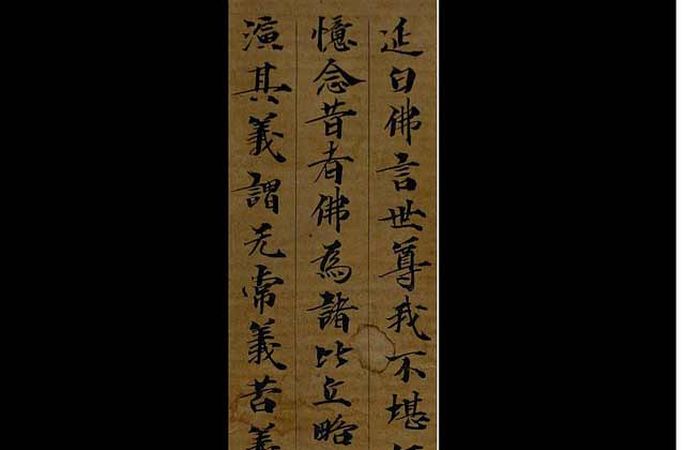 延白佛言世尊我不堪
憶念昔者佛為諸比丘略
演其義謂无常義苦義